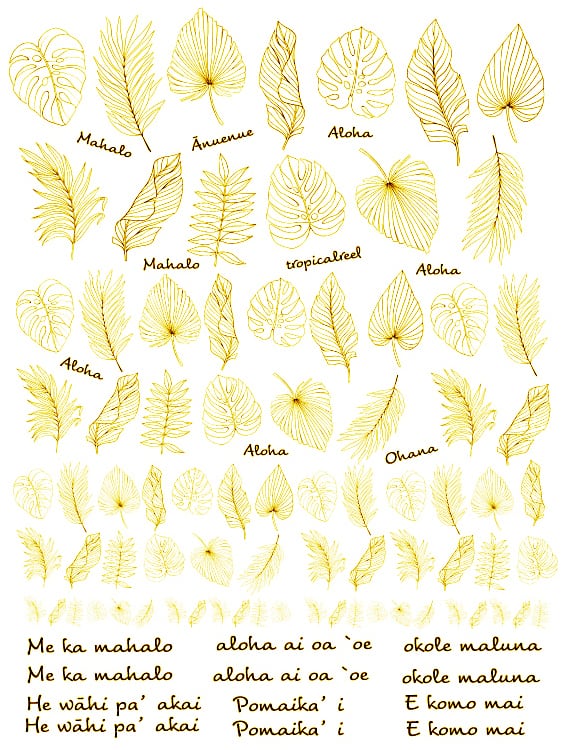 Mahalo
Ānuenue
Aloha
Mahalo
tropicalreel
Aloha
Aloha
Aloha
Ohana
Me ka mahalo aloha ai oa `oe okole maluna
Me ka mahalo aloha ai oa `oe okole maluna
He wāhi pa’ akai Pomaika’ i E komo mai
He wāhi pa’ akai Pomaika’ i E komo mai